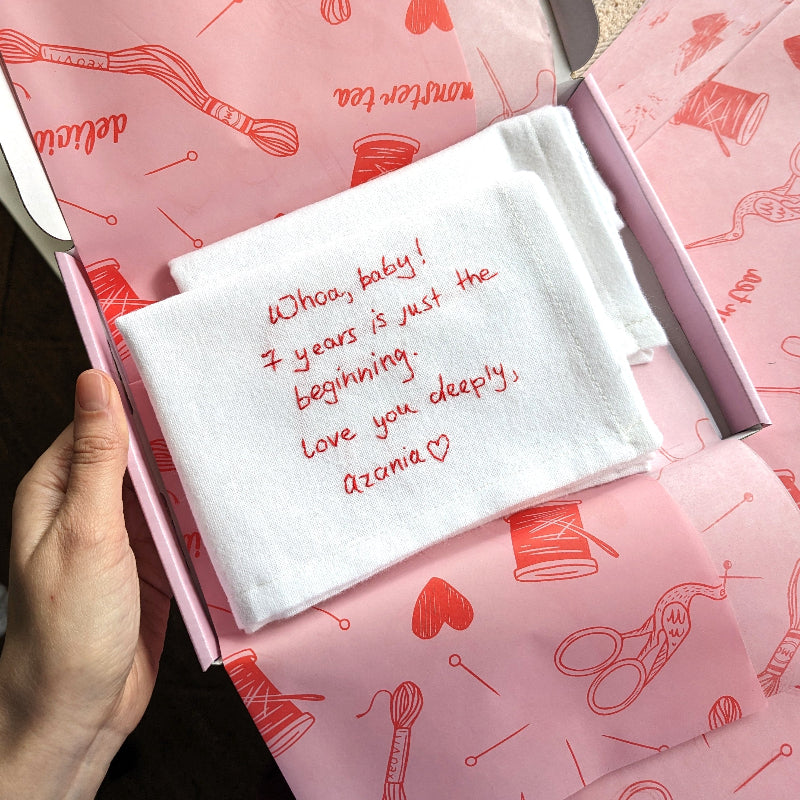 Whoa, baby!
7 years is just the
beginning.
love you deeply,
azania♡
monster tea